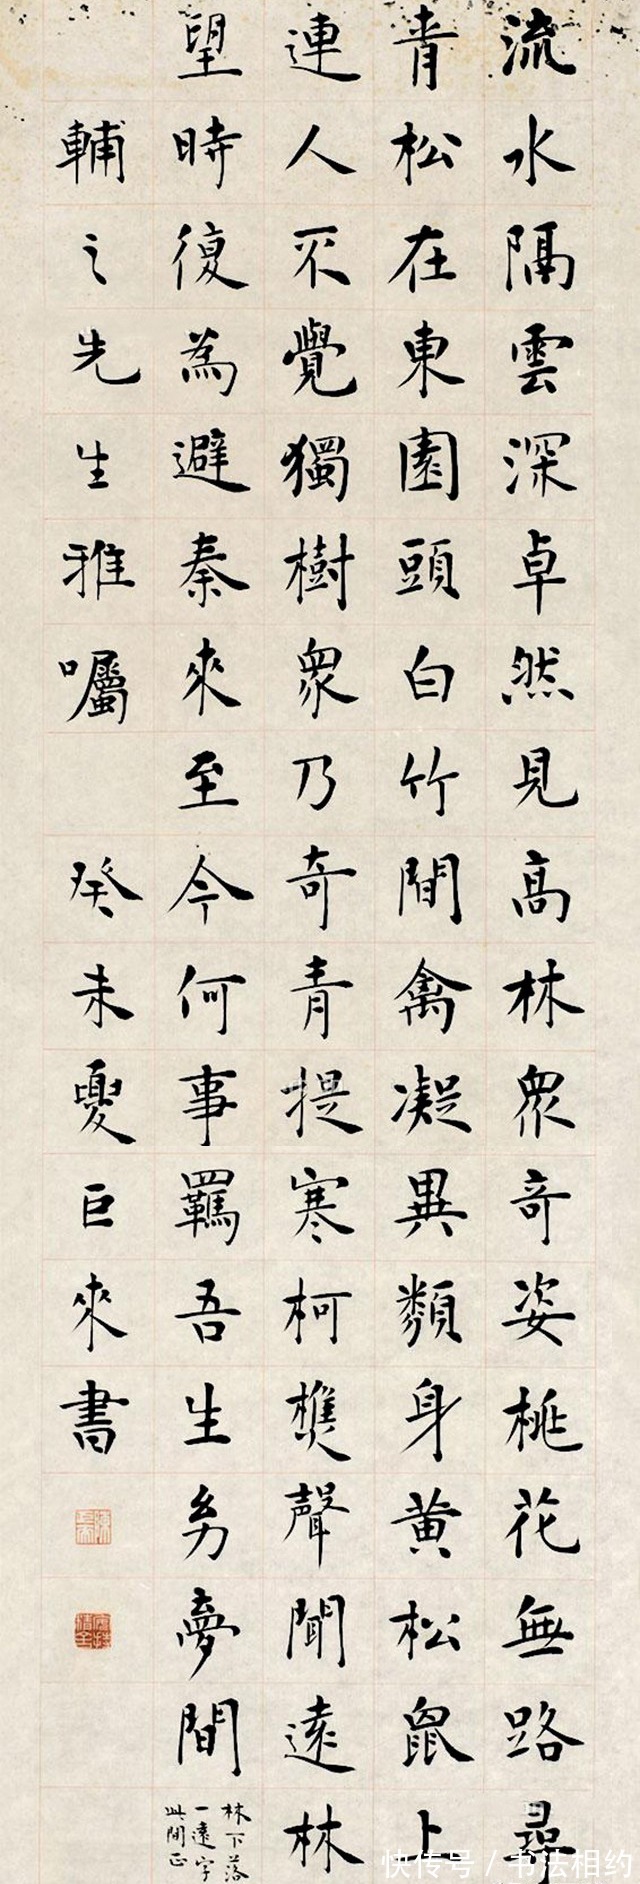 流水隔雲深卓然見高林眾奇姿桃花無路尋
青松在東園頭白竹間禽凝異類身黃松鼠卜
連人不覺獨樹眾乃奇青提寒柯樵聲聞遠林
望時復為避秦來至今何事羈吾生幻夢間
林下落
一遠字
此間正
輔之先生雅囑 癸未夏巨來書
快传号 / 书法相约